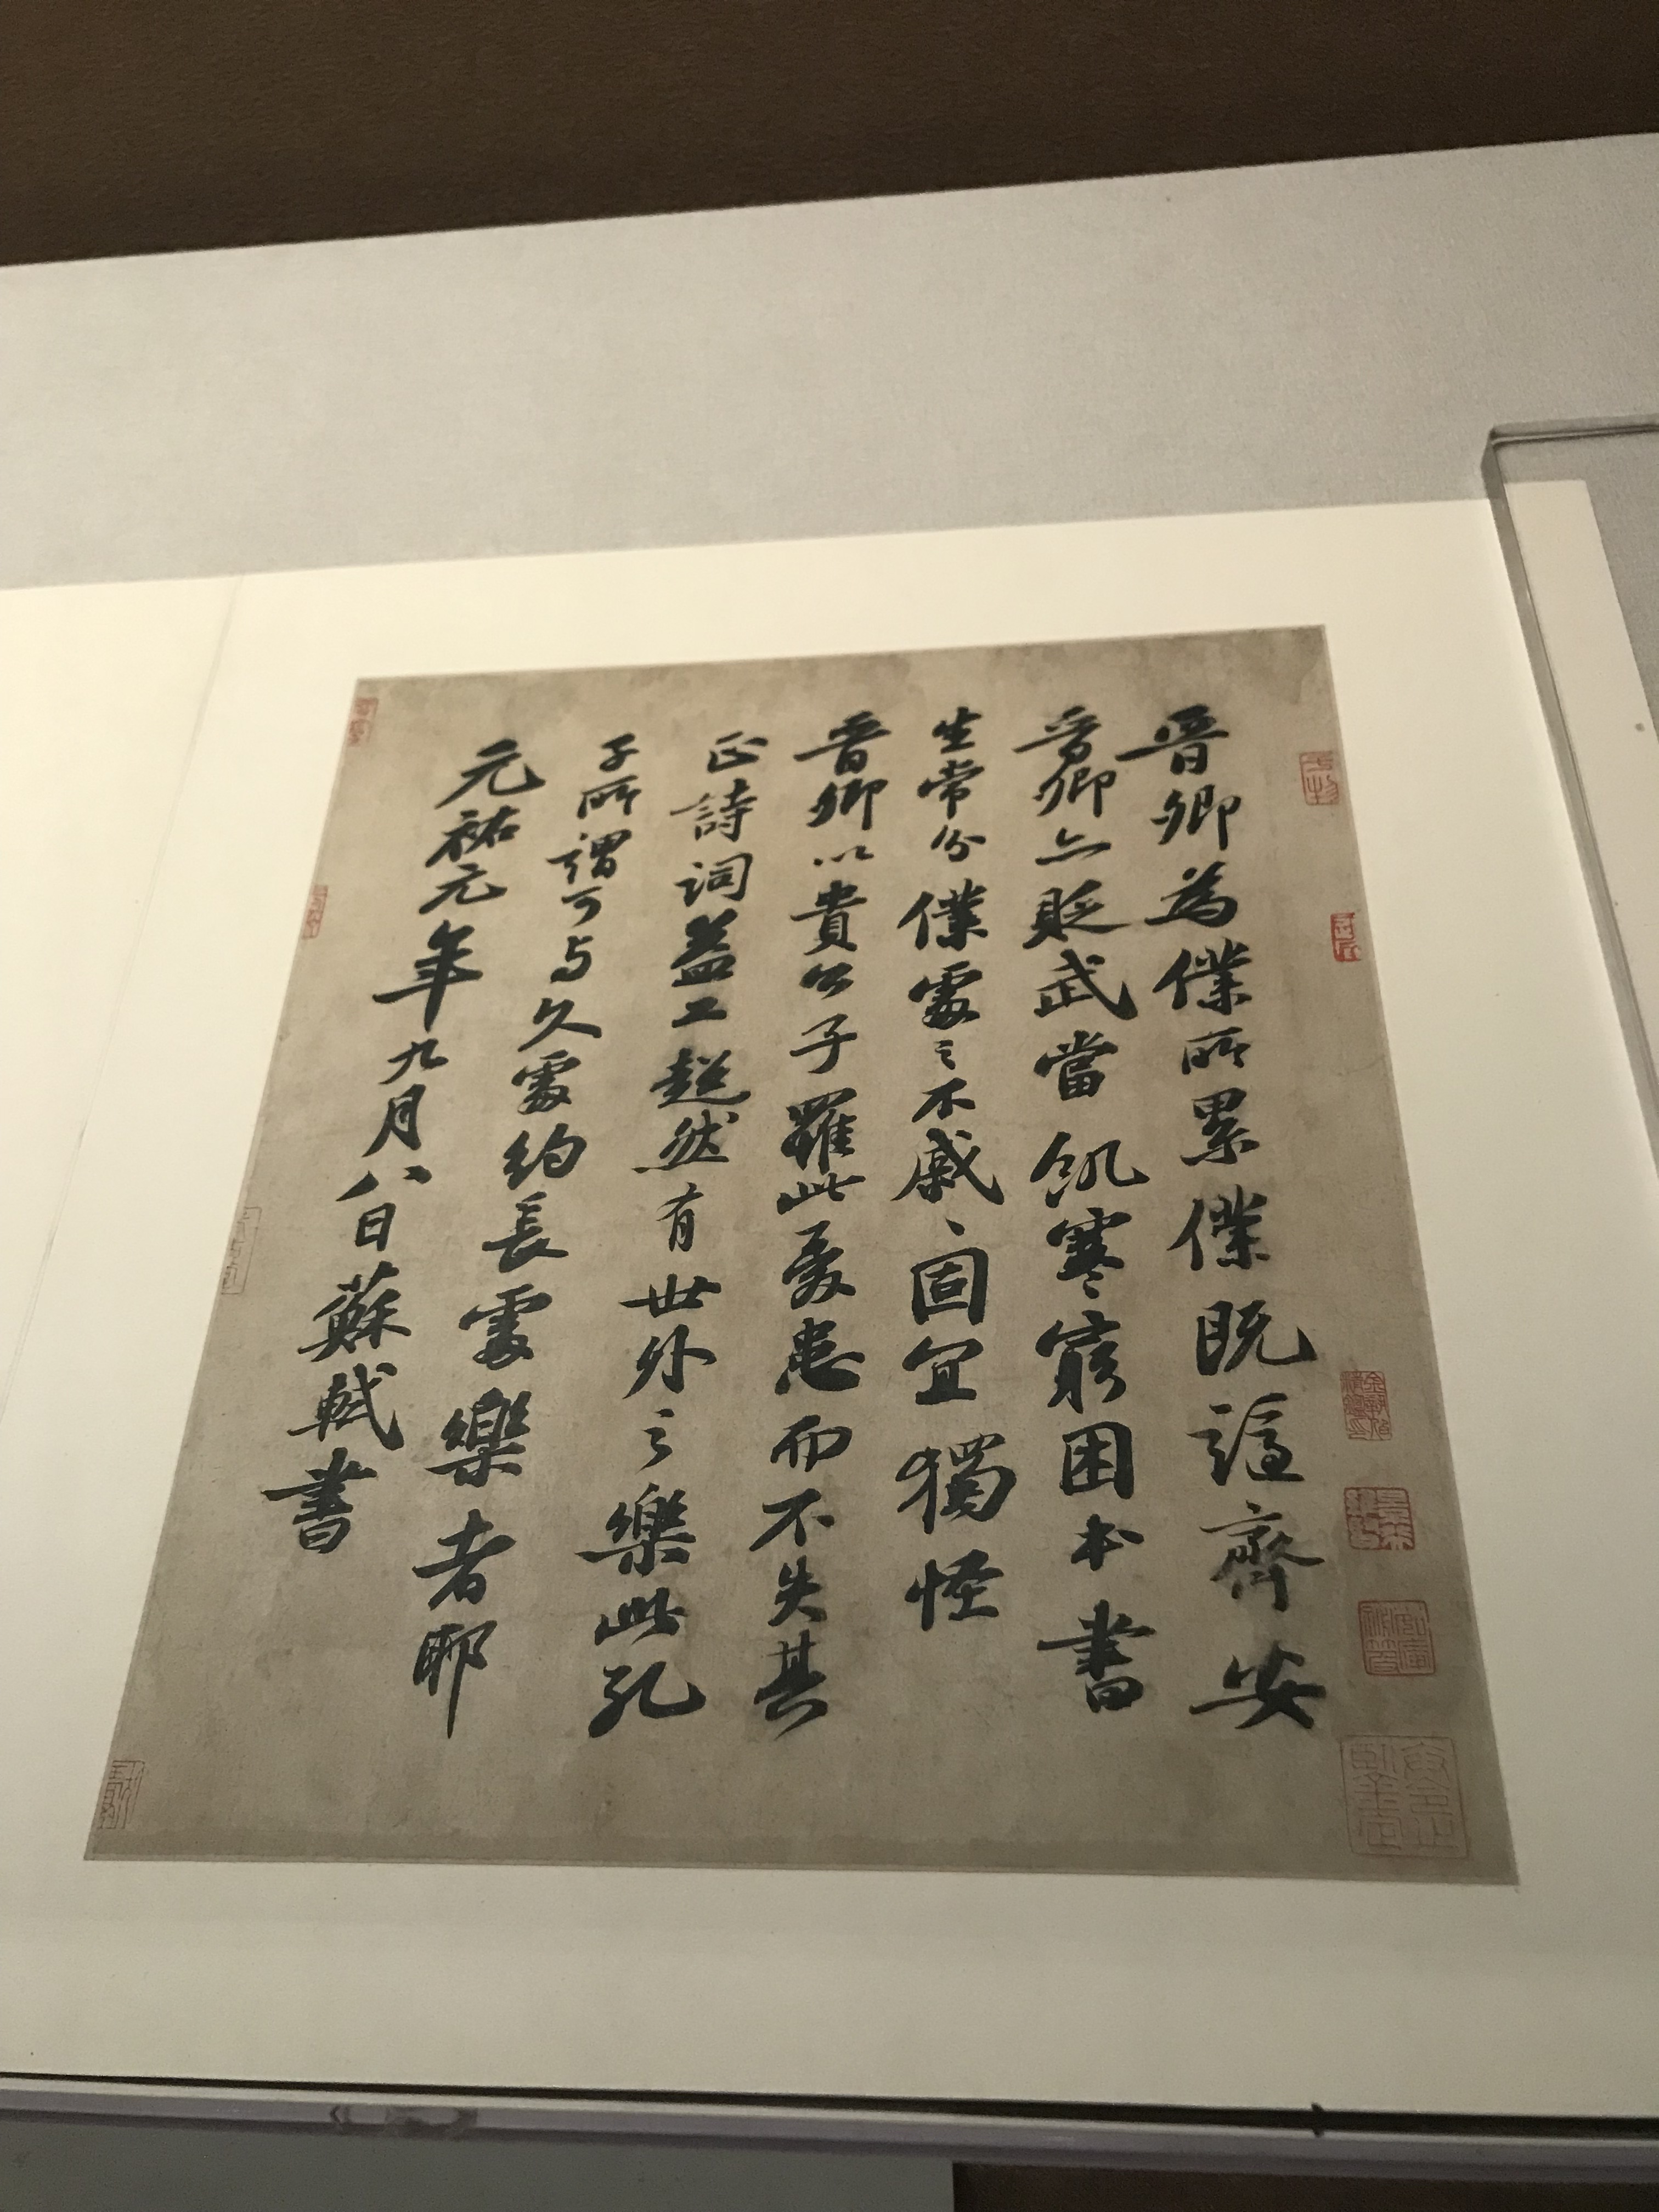 晉卿為僕所累僕既謫齊安
晉卿亦貶武當飢寒窮困本書
生常分僕處之不戚〻固宜獨怪
晉卿以貴公子罹此憂患而不失其
正詩詞益工超然有世外之樂此孔
子所謂可与久處約長處樂者耶
元祐元年九月八日蘇軾書